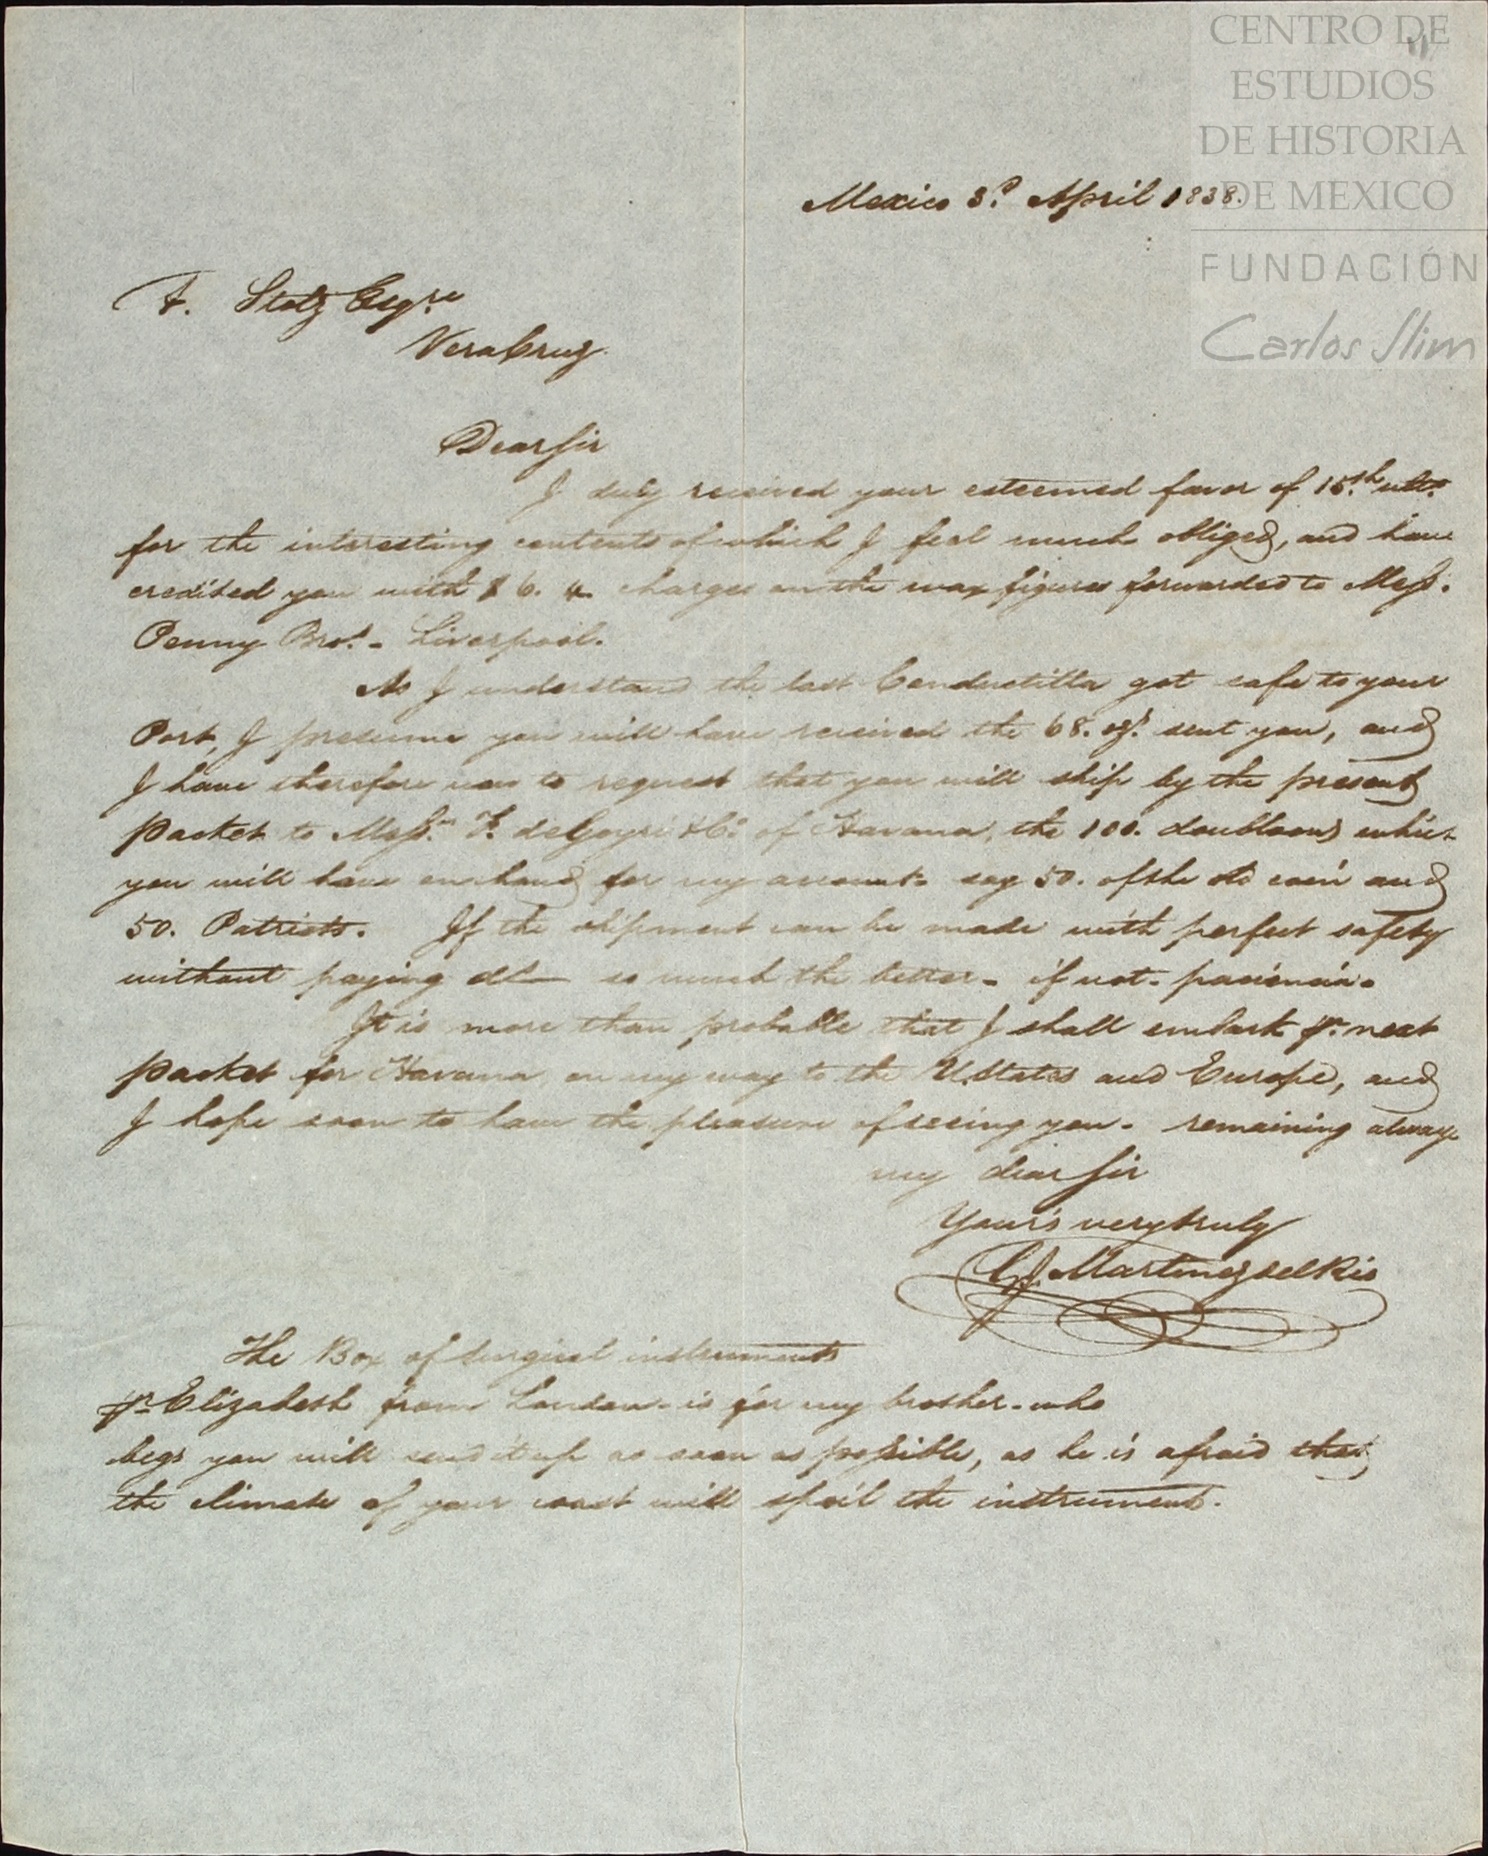 CENTRO DE
ESTUDIOS
DE HISTORIA
DE MEXICO
FUNDACIÓN
Carlos Slim
Mexico 3.d April 1838.
F. Stolz Esqre
VeraCruz.
Dear Sir
I duly received your esteemed favor of 15.th ulto
for the interesting contents of which I feel much obliged, and have
credited you with $ 6. 4 charges on the wax figures forwarded to Mess.
Penny Bros. - Liverpool.
As I understand the last Conductilla got safe to your
Port, I presume you will have received the 68. ozs. sent you, and
I have therefore now to request that you will ship by the present
packet to Mess.rs F. de Goyri & Co. of Havana, the 100. doubloons which
you will have on hand for my account. say 50. of the old coin and
50. Patriots. If the shipment can be made with perfect safety
without paying so much the better - if not - paciencia.
It is more than probable that I shall embark pr. next
packet for Havana, on my way to the U.States and Europe, and
I hope soon to have the pleasure of seeing you - remaining always
my dear Sir
Your's very truly
J. Martinez del Rio
The Box of Surgical instruments
pr Elizabeth from London - is for my brother - who
begs you will send it up as soon as possible, as he is afraid that
the climate of your coast will spoil the instruments.